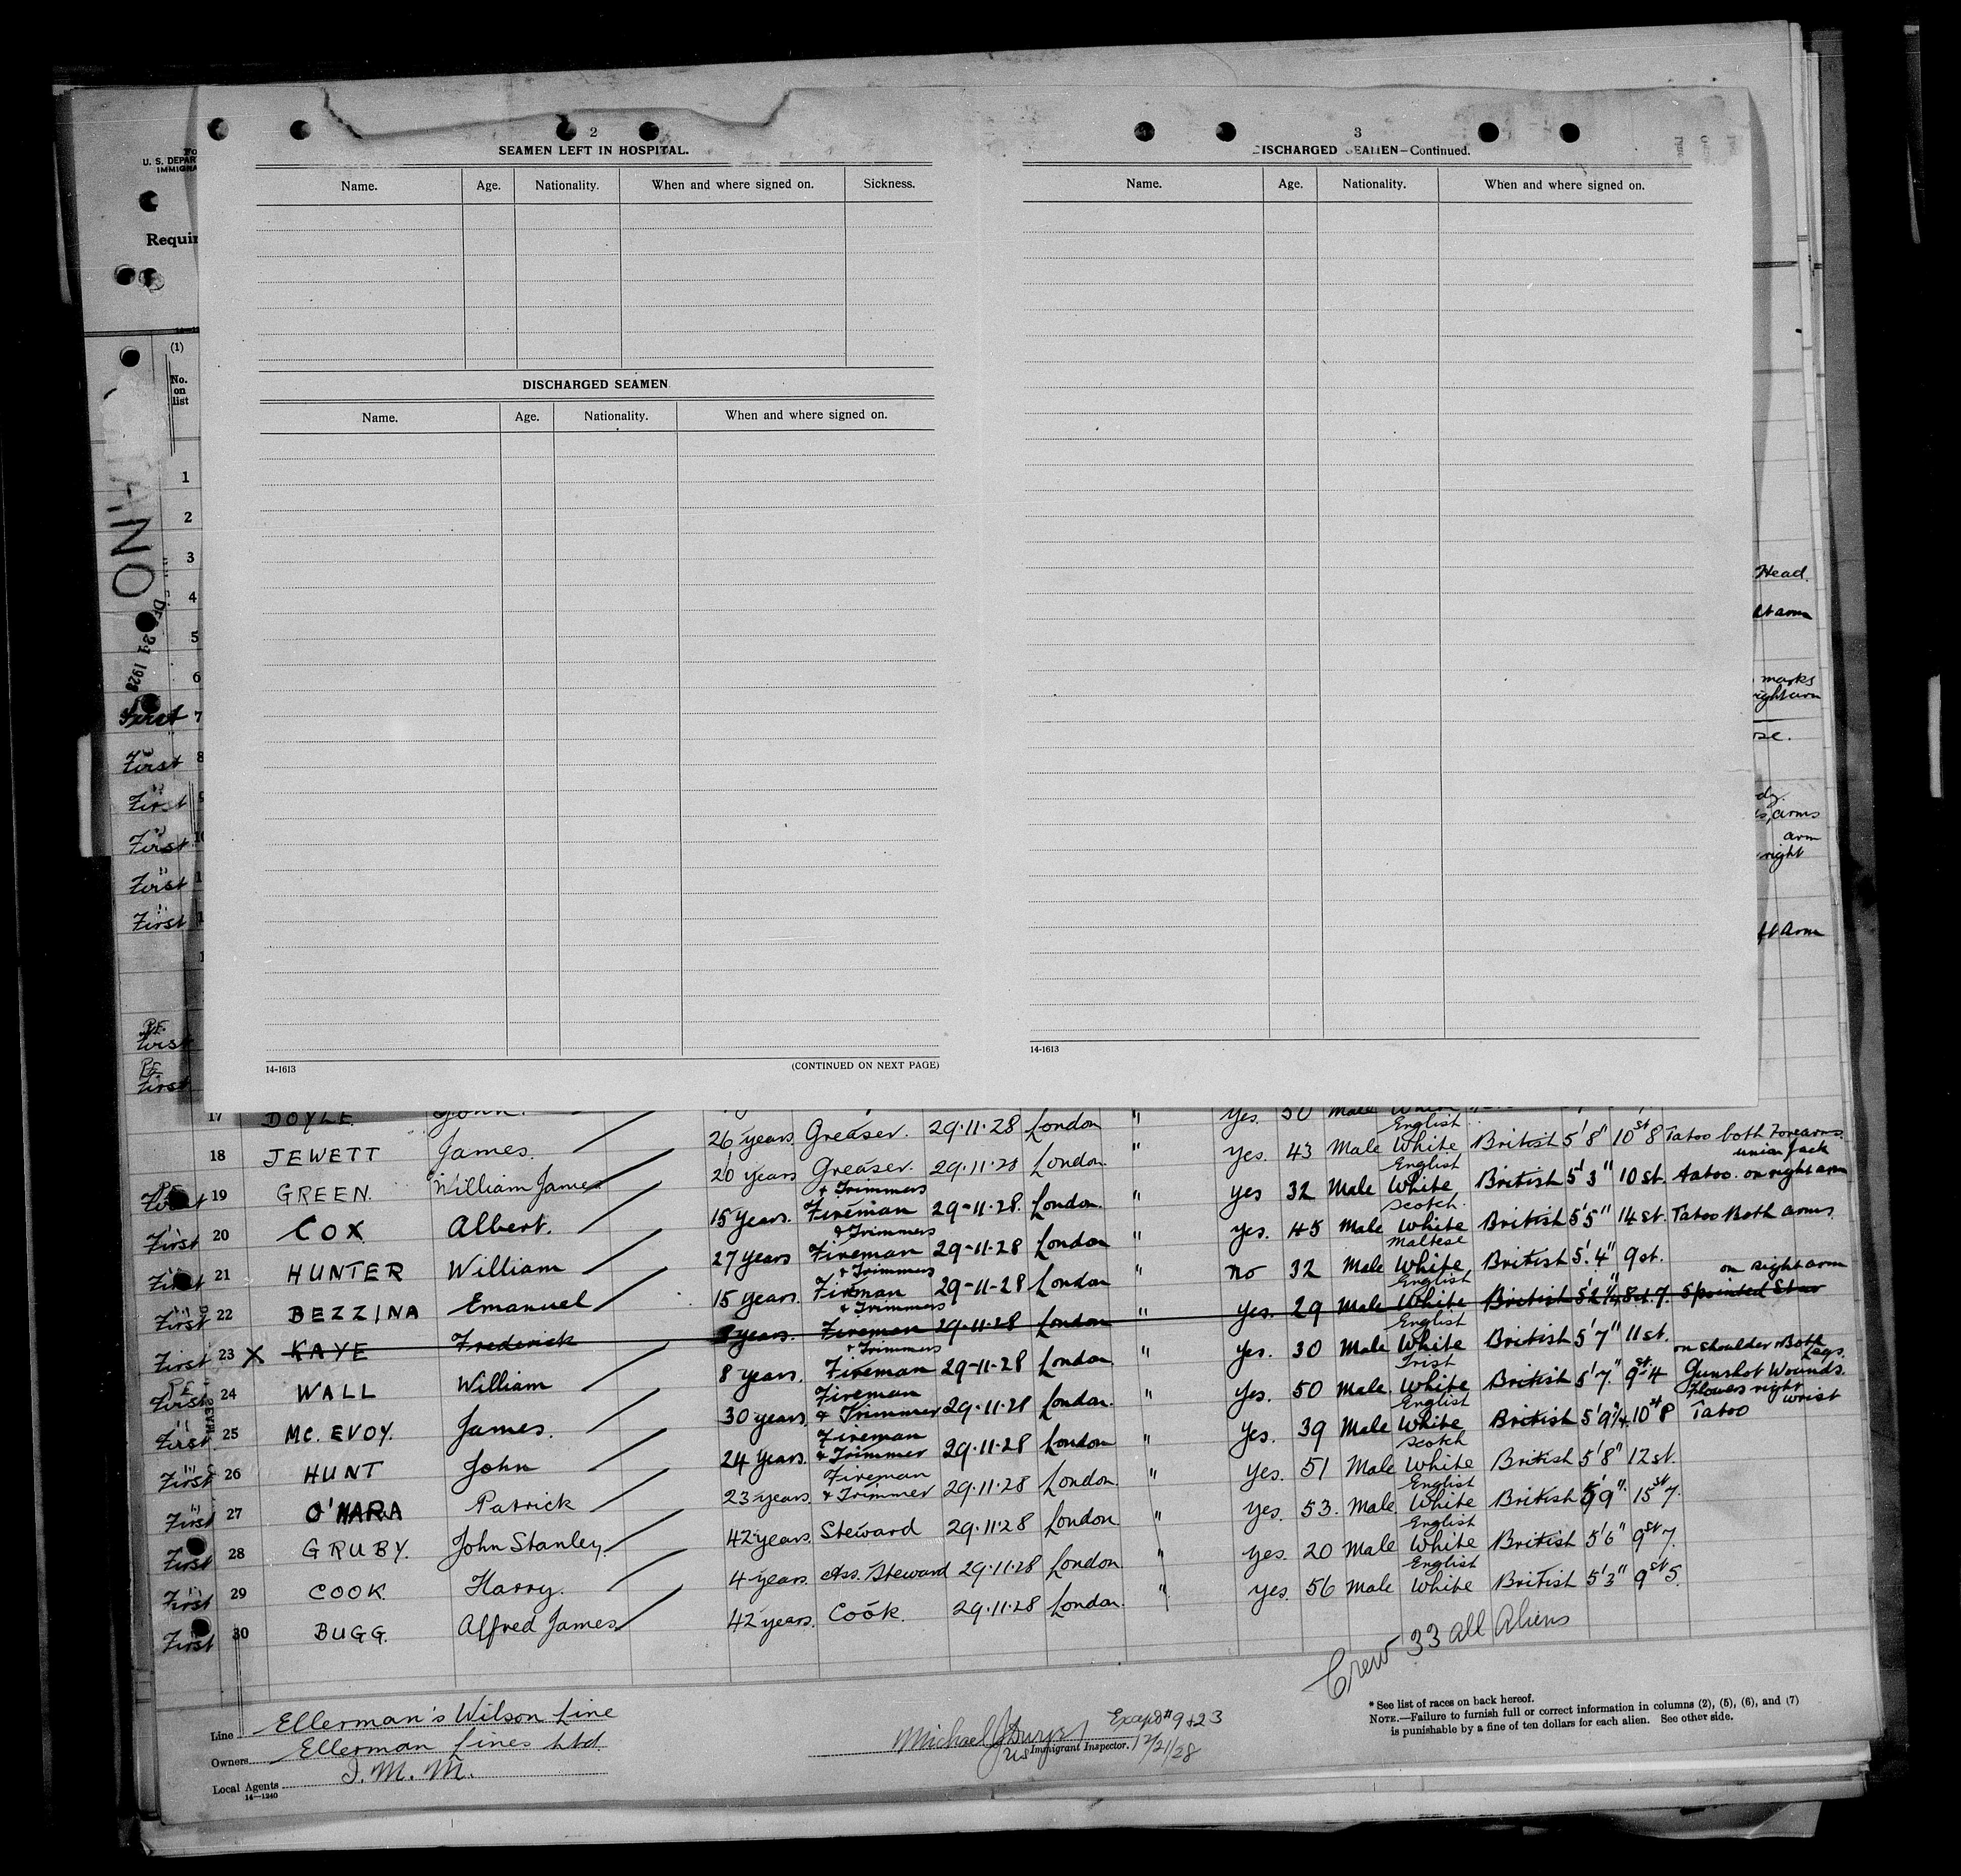 2
SEAMEN LEFT IN HOSPITAL.
Name. Age. Nationality. When and where signed on. Sickness.
DISCHARGED SEAMEN
Name. Age. Nationality. When and where signed on.
14-1613 (CONTINUED ON NEXT PAGE)
3
DISCHARGED SEAMEN—Continued.
Name. Age. Nationality. When and where signed on.
14-1613
U. S. DEPAR
IMMIGRA
Requir
(1)
No.
on
list
1
2
3
4
5
6
First 7
First 8
First
First
First
First
First
First
Head.
arm
marks
right arm
arms
arm
right
arm
17 DOYLE John. 26 years Greaser. 29.11.28 London " Yes. 50 Male White
18 JEWETT James. 20 years Greaser. 29.11.28 London. " Yes. 43 Male English White British 5'8" 10st 8 Tatoo both Forearms.
First 19 GREEN. William James 15 years. & Trimmers Fireman 29-11-28. London. " yes 32 Male English White British 5'3" 10 st. union Jack Tatoo. on right arm
First 20 COX Albert. 27 years & Trimmers Fireman 29-11-28 London " Yes. 45 Male Scotch. White British 5'5" 14 st. Tatoo Both arms.
First 21 HUNTER William 15 years. & Trimmers Fireman 29-11-28 London " no 32 Male Maltese White British 5'.4" 9 st.
First 22 BEZZINA Emanuel years. & Trimmers Fireman 29-11-28 London " Yes. 29 Male English White British 5'2¼" 8st.7. 5 pointed Star on right arm
First 23 X KAYE Frederick 8 years. & Trimmers Fireman 29-11-28 London " Yes. 30 Male English White British 5'7" 11 st.
First 24 WALL William 30 years Fireman & Trimmer 29.11.28 London. " Yes. 50 Male. Irish White British 5'7" 9st 4 on shoulder & Both Legs. Gunshot Wounds.
First 25 Mc. EVOY. James. 24 years. Fireman & Trimmer 29.11.28 London " Yes. 39 Male English White British 5'9¼" 10st 8 Flowers right wrist Tatoo
First 26 HUNT John 23 years Fireman & Trimmer 29.11.28 London. " Yes. 51 Male Scotch White British 5'8" 12 st.
First 27 O'MARA Patrick 42 years. Steward 29.11.28 London " Yes. 53. Male English White British 5'9". 15st 7.
First 28 GRUBY. John Stanley. 4 years. Ass. Steward 29.11.28 London " Yes. 20 Male English White British 5'6" 9st 7.
First 29 COOK. Harry. 42 years. Cook. 29.11.28 London. " yes. 56 Male English White British 5'3" 9st 5.
First 30 BUGG. Alfred James
Crew 33 all Aliens
Line Ellerman's Wilson Line
Owners Ellerman Lines Ltd.
Local Agents I. M. M.
14—1240
Michael
Immigrant Inspector.
#9 & 23
12/21/28
* See list of races on back hereof.
NOTE.—Failure to furnish full or correct information in columns (2), (5), (6), and (7)
is punishable by a fine of ten dollars for each alien. See other side.